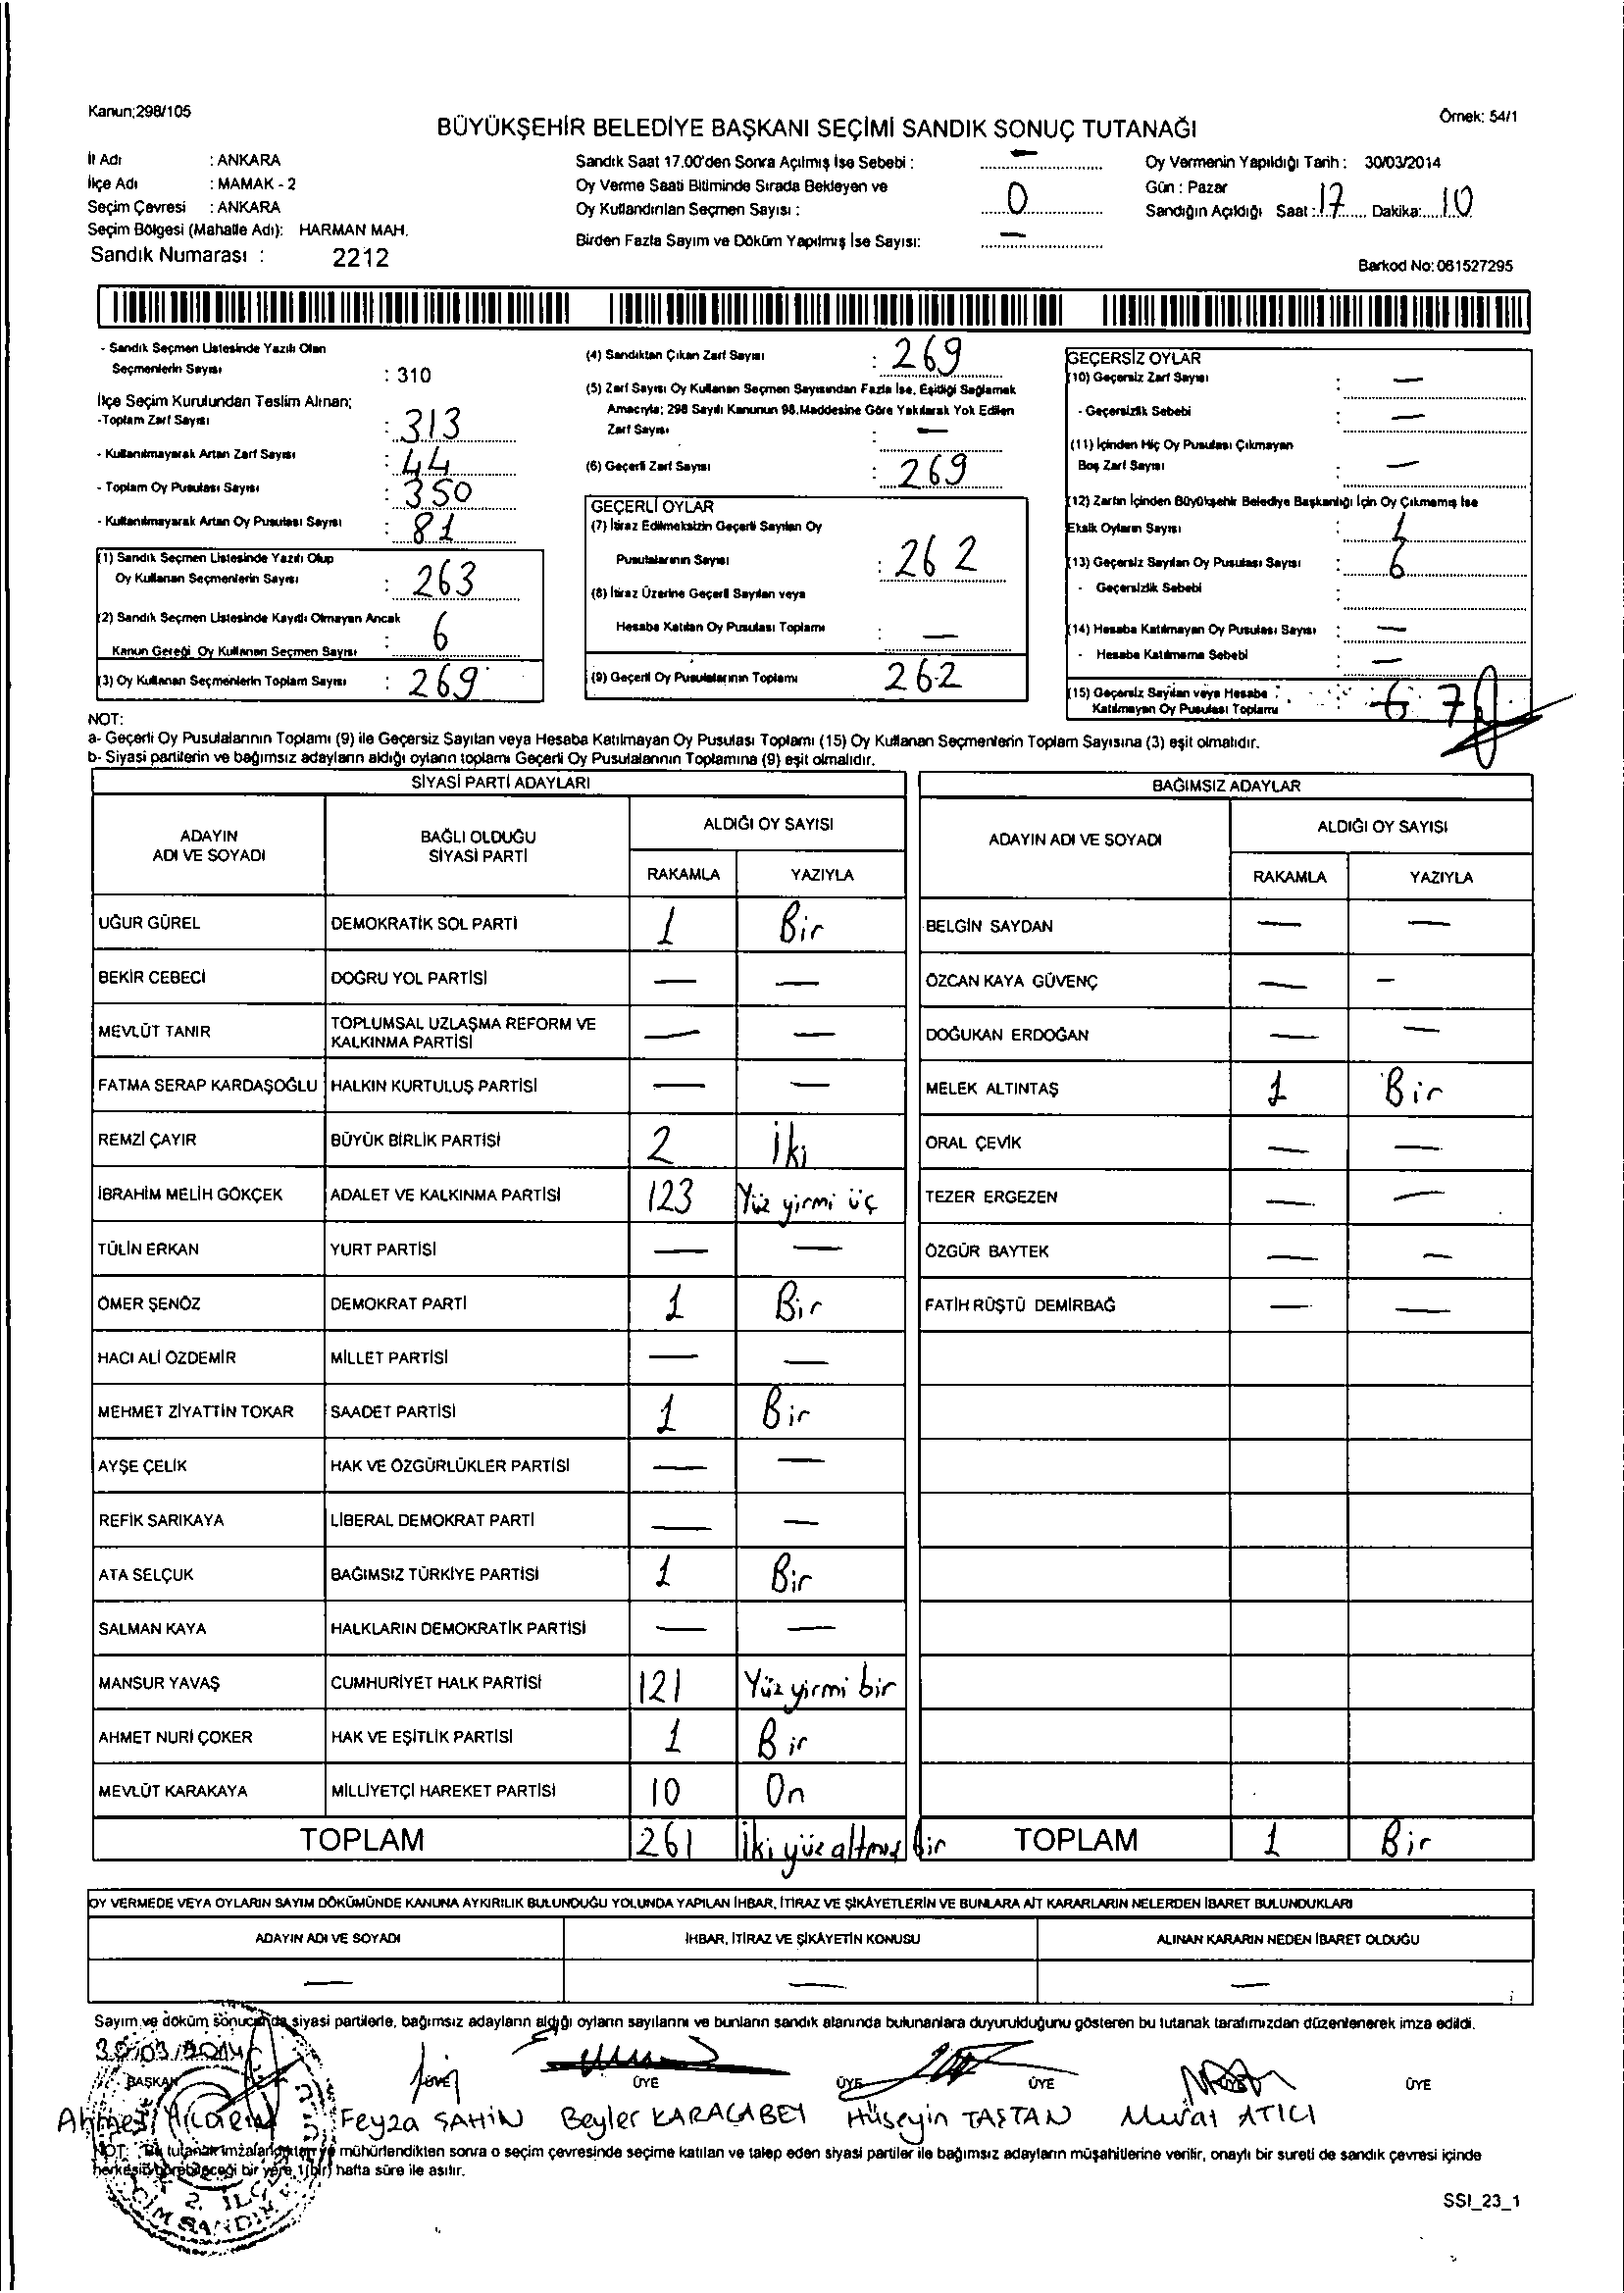 Kanun;298/105
Örnek: 54/1
BÜYÜKŞEHİR BELEDİYE BAŞKANI SEÇİMİ SANDIK SONUÇ TUTANAĞI
İl Adı : ANKARA
İlçe Adı : MAMAK - 2
Seçim Çevresi : ANKARA
Seçim Bölgesi (Mahalle Adı): HARMAN MAH.
Sandık Numarası : 2212
Sandık Saat 17.00'den Sonra Açılmış İse Sebebi : —
Oy Verme Saati Bitiminde Sırada Bekleyen ve
Oy Kullandırılan Seçmen Sayısı : 0
Birden Fazla Sayım ve Döküm Yapılmış İse Sayısı: —
Oy Vermenin Yapıldığı Tarih : 30/03/2014
Gün : Pazar
Sandığın Açıldığı Saat : 17 Dakika: 10
Barkod No: 061527295
- Sandık Seçmen Listesinde Yazılı Olan
Seçmenlerin Sayısı : 310
İlçe Seçim Kurulundan Teslim Alınan;
-Toplam Zarf Sayısı : 313
- Kullanılmayarak Artan Zarf Sayısı : 44
- Toplam Oy Pusulası Sayısı : 350
- Kullanılmayarak Artan Oy Pusulası Sayısı : 81
(1) Sandık Seçmen Listesinde Yazılı Olup
Oy Kullanan Seçmenlerin Sayısı : 263
(2) Sandık Seçmen Listesinde Kayıtlı Olmayan Ancak
Kanun Gereği Oy Kullanan Seçmen Sayısı : 6
(3) Oy Kullanan Seçmenlerin Toplam Sayısı : 269
(4) Sandıktan Çıkan Zarf Sayısı : 269
(5) Zarf Sayısı Oy Kullanan Seçmen Sayısından Fazla İse, Eşitliği Sağlamak
Amacıyla; 298 Sayılı Kanunun 98.Maddesine Göre Yakılarak Yok Edilen
Zarf Sayısı : —
(6) Geçerli Zarf Sayısı : 269
GEÇERLİ OYLAR
(7) İtiraz Edilmeksizin Geçerli Sayılan Oy
Pusulalarının Sayısı : 262
(8) İtiraz Üzerine Geçerli Sayılan veya
Hesaba Katılan Oy Pusulası Toplamı : —
(9) Geçerli Oy Pusulalarının Toplamı 262
GEÇERSİZ OYLAR
(10) Geçersiz Zarf Sayısı : —
- Geçersizlik Sebebi : —
(11) İçinden Hiç Oy Pusulası Çıkmayan
Boş Zarf Sayısı : —
(12) Zarfın İçinden Büyükşehir Belediye Başkanlığı İçin Oy Çıkmamış İse
Eksik Oyların Sayısı : 1
(13) Geçersiz Sayılan Oy Pusulası Sayısı : 6
- Geçersizlik Sebebi :
(14) Hesaba Katılmayan Oy Pusulası Sayısı : —
- Hesaba Katılmama Sebebi : —
(15) Geçersiz Sayılan veya Hesaba
Katılmayan Oy Pusulası Toplamı : 6 7
NOT:
a- Geçerli Oy Pusulalarının Toplamı (9) ile Geçersiz Sayılan veya Hesaba Katılmayan Oy Pusulası Toplamı (15) Oy Kullanan Seçmenlerin Toplam Sayısına (3) eşit olmalıdır.
b- Siyasi partilerin ve bağımsız adayların aldığı oyların toplamı Geçerli Oy Pusulalarının Toplamına (9) eşit olmalıdır.
SİYASİ PARTİ ADAYLARI
ADAYIN ADI VE SOYADI BAĞLI OLDUĞU SİYASİ PARTİ ALDIĞI OY SAYISI
RAKAMLA YAZIYLA
UĞUR GÜREL DEMOKRATİK SOL PARTİ 1 Bir
BEKİR CEBECİ DOĞRU YOL PARTİSİ — —
MEVLÜT TANIR TOPLUMSAL UZLAŞMA REFORM VE KALKINMA PARTİSİ — —
FATMA SERAP KARDAŞOĞLU HALKIN KURTULUŞ PARTİSİ — —
REMZİ ÇAYIR BÜYÜK BİRLİK PARTİSİ 2 İki
İBRAHİM MELİH GÖKÇEK ADALET VE KALKINMA PARTİSİ 123 Yüz yirmi üç
TÜLİN ERKAN YURT PARTİSİ — —
ÖMER ŞENÖZ DEMOKRAT PARTİ 1 Bir
HACI ALİ ÖZDEMİR MİLLET PARTİSİ — —
MEHMET ZİYATTİN TOKAR SAADET PARTİSİ 1 Bir
AYŞE ÇELİK HAK VE ÖZGÜRLÜKLER PARTİSİ — —
REFİK SARIKAYA LİBERAL DEMOKRAT PARTİ — —
ATA SELÇUK BAĞIMSIZ TÜRKİYE PARTİSİ 1 Bir
SALMAN KAYA HALKLARIN DEMOKRATİK PARTİSİ — —
MANSUR YAVAŞ CUMHURİYET HALK PARTİSİ 121 Yüz yirmi bir
AHMET NURİ ÇOKER HAK VE EŞİTLİK PARTİSİ 1 Bir
MEVLÜT KARAKAYA MİLLİYETÇİ HAREKET PARTİSİ 10 On
TOPLAM 261 İki yüz altmış bir
BAĞIMSIZ ADAYLAR
ADAYIN ADI VE SOYADI ALDIĞI OY SAYISI
RAKAMLA YAZIYLA
BELGİN SAYDAN — —
ÖZCAN KAYA GÜVENÇ — —
DOĞUKAN ERDOĞAN — —
MELEK ALTINTAŞ 1 Bir
ORAL ÇEVİK — —
TEZER ERGEZEN — —
ÖZGÜR BAYTEK — —
FATİH RÜŞTÜ DEMİRBAĞ — —
TOPLAM 1 Bir
OY VERMEDE VEYA OYLARIN SAYIM DÖKÜMÜNDE KANUNA AYKIRILIK BULUNDUĞU YOLUNDA YAPILAN İHBAR, İTİRAZ VE ŞİKÂYETLERİN VE BUNLARA AİT KARARLARIN NELERDEN İBARET BULUNDUKLARI
ADAYIN ADI VE SOYADI İHBAR, İTİRAZ VE ŞİKÂYETİN KONUSU ALINAN KARARIN NEDEN İBARET OLDUĞU
— — —
Sayım ve döküm sonucunda siyasi partilerle, bağımsız adayların aldığı oyların sayılarını ve bunların sandık alanında bulunanlara duyurulduğunu gösteren bu tutanak tarafımızdan düzenlenerek imza edildi.
30/03/2014
BAŞKAN ÜYE ÜYE ÜYE ÜYE ÜYE ÜYE
Ahmet Feyza ŞAHİN Beyler KARACABEY Hüseyin TAŞTAN Murat ATICI
NOT: Bu tutanak imzalandıktan ve mühürlendikten sonra o seçim çevresinde seçime katılan ve talep eden siyasi partiler ile bağımsız adayların müşahitlerine verilir, onaylı bir sureti de sandık çevresi içinde
herkesin görebileceği bir yere 1(bir) hafta süre ile asılır.
2. İLÇE
SSI_23_1